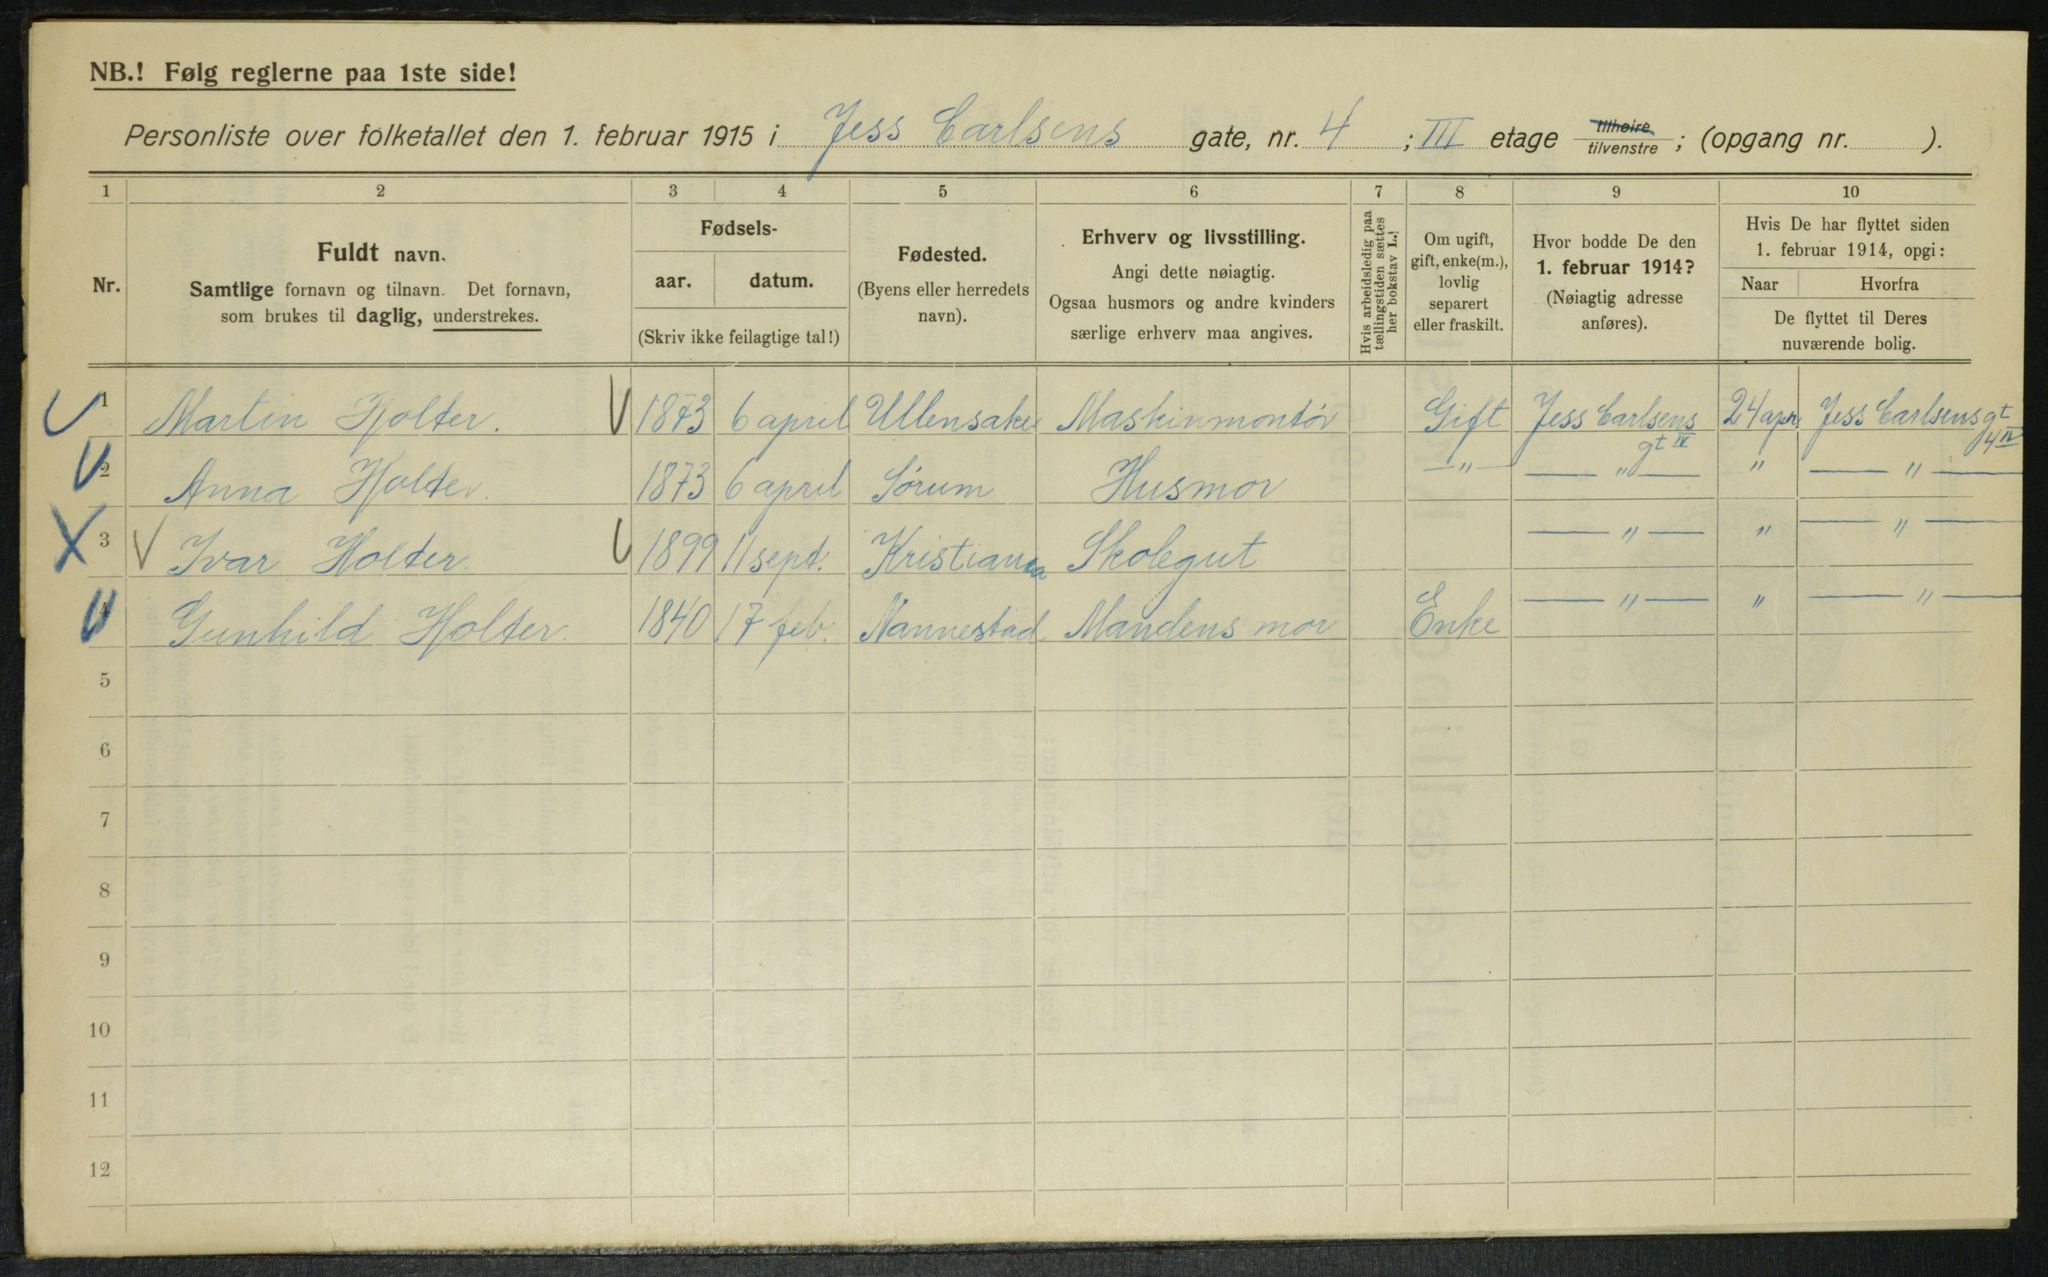 NB.! Følg reglerne paa 1ste side!
Personliste over folketallet den 1. februar 1915 i Jess Carlsens gate, nr. 4 ; III etage tilhøire tilvenstre ; (opgang nr. ).
1 2 3 4 5 6 7 8 9 10
Nr.
Fuldt navn.
Samtlige fornavn og tilnavn. Det fornavn,
som brukes til daglig, understrekes.
Fødsels-
aar. datum.
(Skriv ikke feilagtige tal!)
Fødested.
(Byens eller herredets
navn).
Erhverv og livsstilling.
Angi dette nøiagtig.
Ogsaa husmors og andre kvinders
særlige erhverv maa angives.
Hvis arbeidsledig paa
tællingstiden sættes
her bokstav L.!
Om ugift,
gift, enke(m.),
lovlig
separert
eller fraskilt.
Hvor bodde De den
1. februar 1914?
(Nøiagtig adresse
anføres).
Hvis De har flyttet siden
1. februar 1914, opgi:
Naar Hvorfra
De flyttet til Deres
nuværende bolig.
1 Martin Holter. 1873 6 april Ullensaker Maskinmontør Gift Jess Carlsens gt IV 24 apr. Jess Carlsens gt 4 IV
2 Anna Holter. 1873 6 april Sørum Husmor —"— —"— " —"—
3 Ivar Holter. 1899 11 sept. Kristiania Skolegut —"— " —"—
4 Gunhild Holter. 1840 17 feb. Nannestad Mandens mor Enke —"— " —"—
5
6
7
8
9
10
11
12